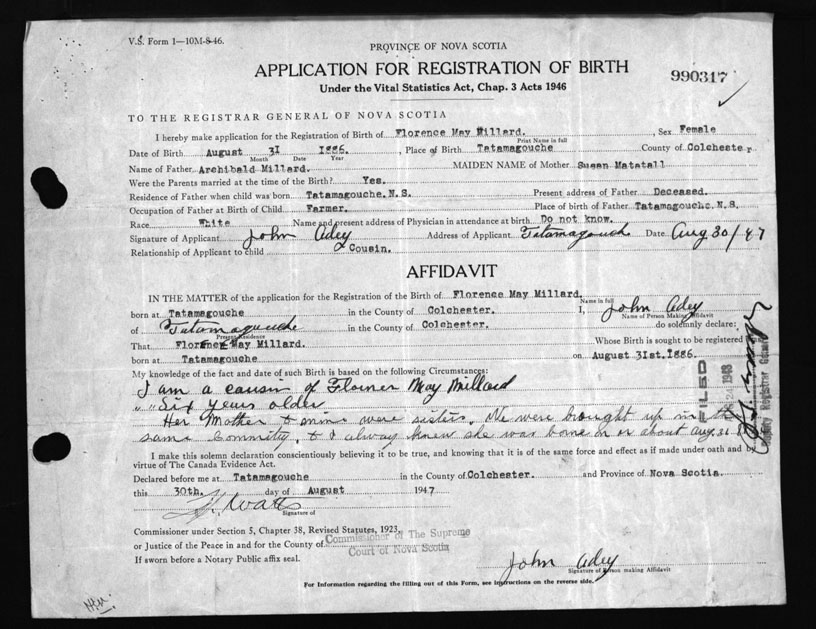 V.S. Form 1—10M-8-46.
PROVINCE OF NOVA SCOTIA
APPLICATION FOR REGISTRATION OF BIRTH
990317
Under the Vital Statistics Act, Chap. 3 Acts 1946
TO THE REGISTRAR GENERAL OF NOVA SCOTIA
I hereby make application for the Registration of Birth of Florence May Millard. , Sex Female
Print Name in full
Date of Birth August 31 1886. , Place of Birth Tatamagouche County of Colchester
Month Date Year
Name of Father Archibald Millard. MAIDEN NAME of Mother Susan Matatall
Were the Parents married at the time of the Birth? Yes.
Residence of Father when child was born Tatamagouche, N.S. Present address of Father Deceased.
Occupation of Father at Birth of Child Farmer. Place of birth of Father Tatamagouche. N.S.
Race White Name and present address of Physician in attendance at birth Do not know.
Signature of Applicant John Adey Address of Applicant Tatamagouch Date Aug 30/47
Relationship of Applicant to child Cousin.
AFFIDAVIT
IN THE MATTER of the application for the Registration of the Birth of Florence May Millard.
Name in full
born at Tatamagouche in the County of Colchester. I, John Adey
Name of Person Making Affidavit
of Tatamagouche in the County of Colchester. do solemnly declare:
Present Residence
That Florence May Millard. Whose Birth is sought to be registered
born at Tatamagouche on August 31st. 1886.
My knowledge of the fact and date of such Birth is based on the following Circumstances:
I am a causin of Florner May Millard
" " Six years older
Her Mother & mine were sisters. We were brought up in the
same Commnity, & I always knew she was borne on or about Aug. 31
FILED
1948
Deputy Registrar General
I make this solemn declaration conscientiously believing it to be true, and knowing that it is of the same force and effect as if made under oath and by
virtue of The Canada Evidence Act.
Declared before me at Tatamagouche in the County of Colchester. and Province of Nova Scotia.
this 30th. day of August 1947
Watts
Signature of
Commissioner under Section 5, Chapter 38, Revised Statutes, 1923,
or Justice of the Peace in and for the County of
Commissioner of The Supreme
Court of Nova Scotia
If sworn before a Notary Public affix seal.
John Adey
Signature of Person making Affidavit
For Information regarding the filling out of this Form, see instructions on the reverse side.